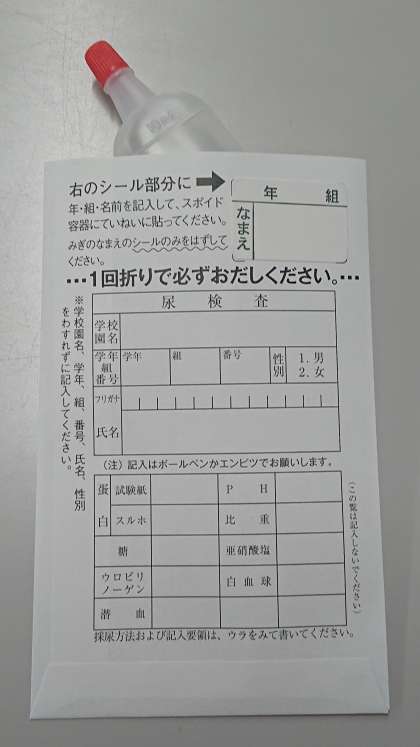 右のシール部分に
年・組・名前を記入して、スポイド
容器にていねいに貼ってください。
みぎのなまえのシールのみをはずして
ください。
年 組
なまえ
…1回折りで必ずおだしください。…
※学校園名、学年、組、番号、氏名、性別
をわすれずに記入してください。
尿検査
学校
園名
学年
組
番号
学年
組
番号
性別
1. 男
2. 女
フリガナ
氏名
(注) 記入はボールペンかエンピツでお願いします。
蛋白
試験紙
PH
スルホ
比重
糖
亜硝酸塩
ウロビリ
ノーゲン
白血球
潜血
(この覧は記入しないでください)
採尿方法および記入要領は、ウラをみて書いてください。